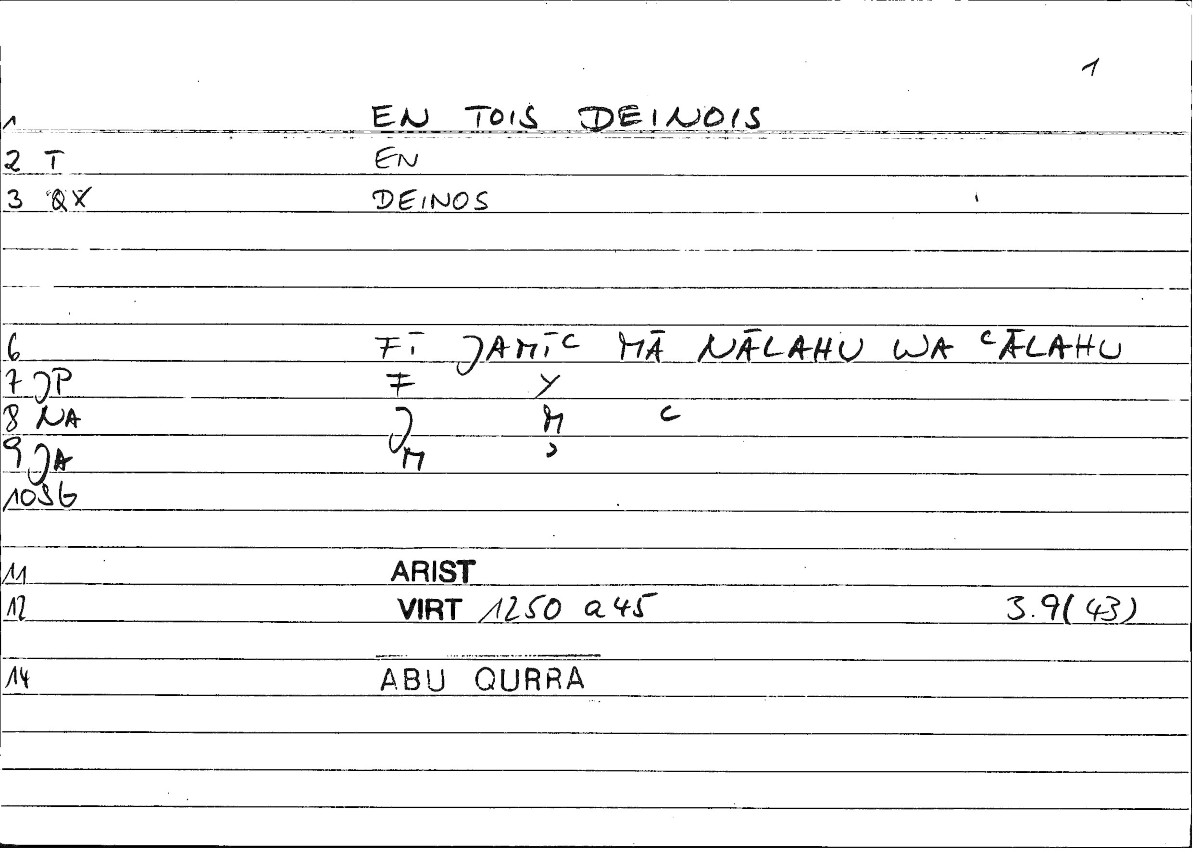 1
1 EN TOIS DEINOIS
2 T EN
3 QX DEINOS
6 FĪ JAMĪC MĀ NĀLAHU WA CĀLAHU
7 JP F Y
8 NA J M C
9 JA M Ɔ
10 SG
11 ARIST
12 VIRT 1250 a 45 3.9(43)
14 ABU QURRA